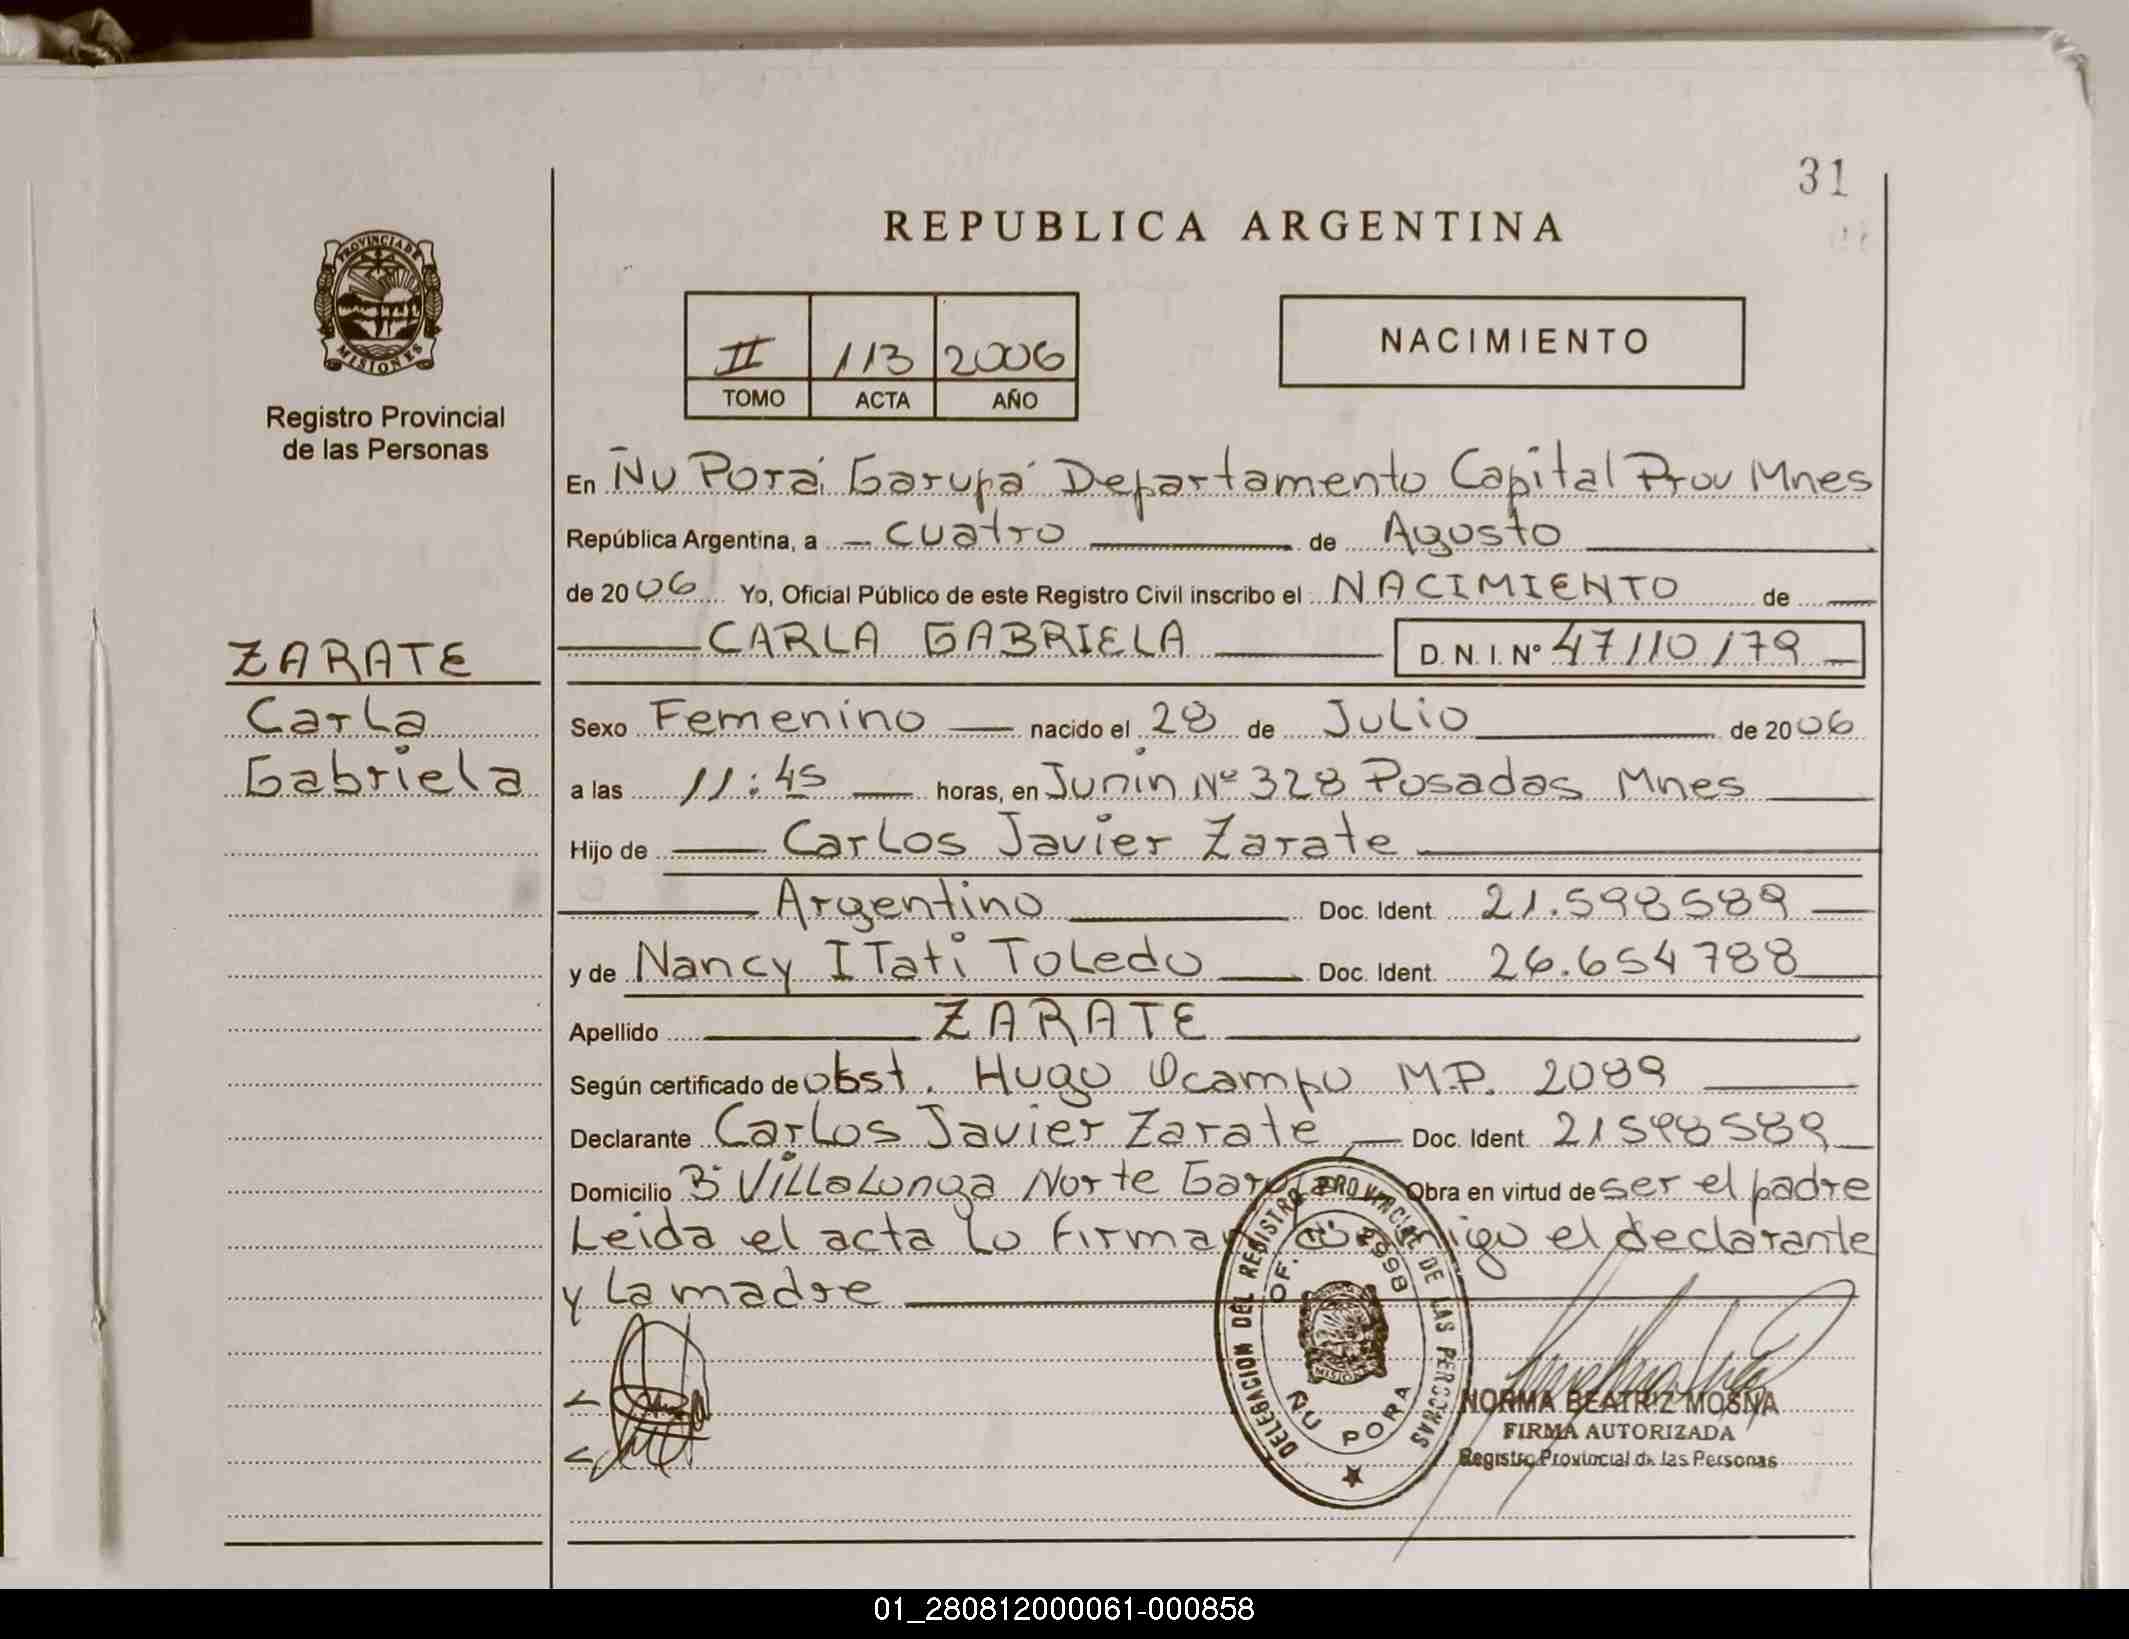 31
REPUBLICA ARGENTINA
PROVINCIA DE
MISIONES
Registro Provincial
de las Personas
II 113 2006
TOMO ACTA AÑO
NACIMIENTO
En Ñu Porá Garupá Departamento Capital Prov Mnes
República Argentina, a cuatro de Agosto
de 2006 Yo, Oficial Público de este Registro Civil inscribo el NACIMIENTO de
CARLA GABRIELA D. N. I. Nº 47110179
ZARATE
Carla
Gabriela
Sexo Femenino nacido el 28 de Julio de 2006
a las 11:45 horas, en Junín Nº 328 Posadas Mnes
Hijo de Carlos Javier Zarate
Argentino Doc. Ident. 21.598589
y de Nancy ITatí Toledo Doc. Ident. 26.654788
Apellido ZARATE
Según certificado de obst. Hugo Ocampo M.P. 2089
Declarante Carlos Javier Zarate Doc. Ident. 21598589
Domicilio Bº Villalonga Norte Obra en virtud de ser el padre
Leida el acta lo firman conmigo el declarante
y la madre
DELEGACION DEL REGISTRO PROVINCIAL DE LAS PERSONAS
OF. Nº 2998
MISIONES
ÑU PORA
NORMA BEATRIZ MOSNA
FIRMA AUTORIZADA
Registro Provincial de las Personas
01_280812000061-000858